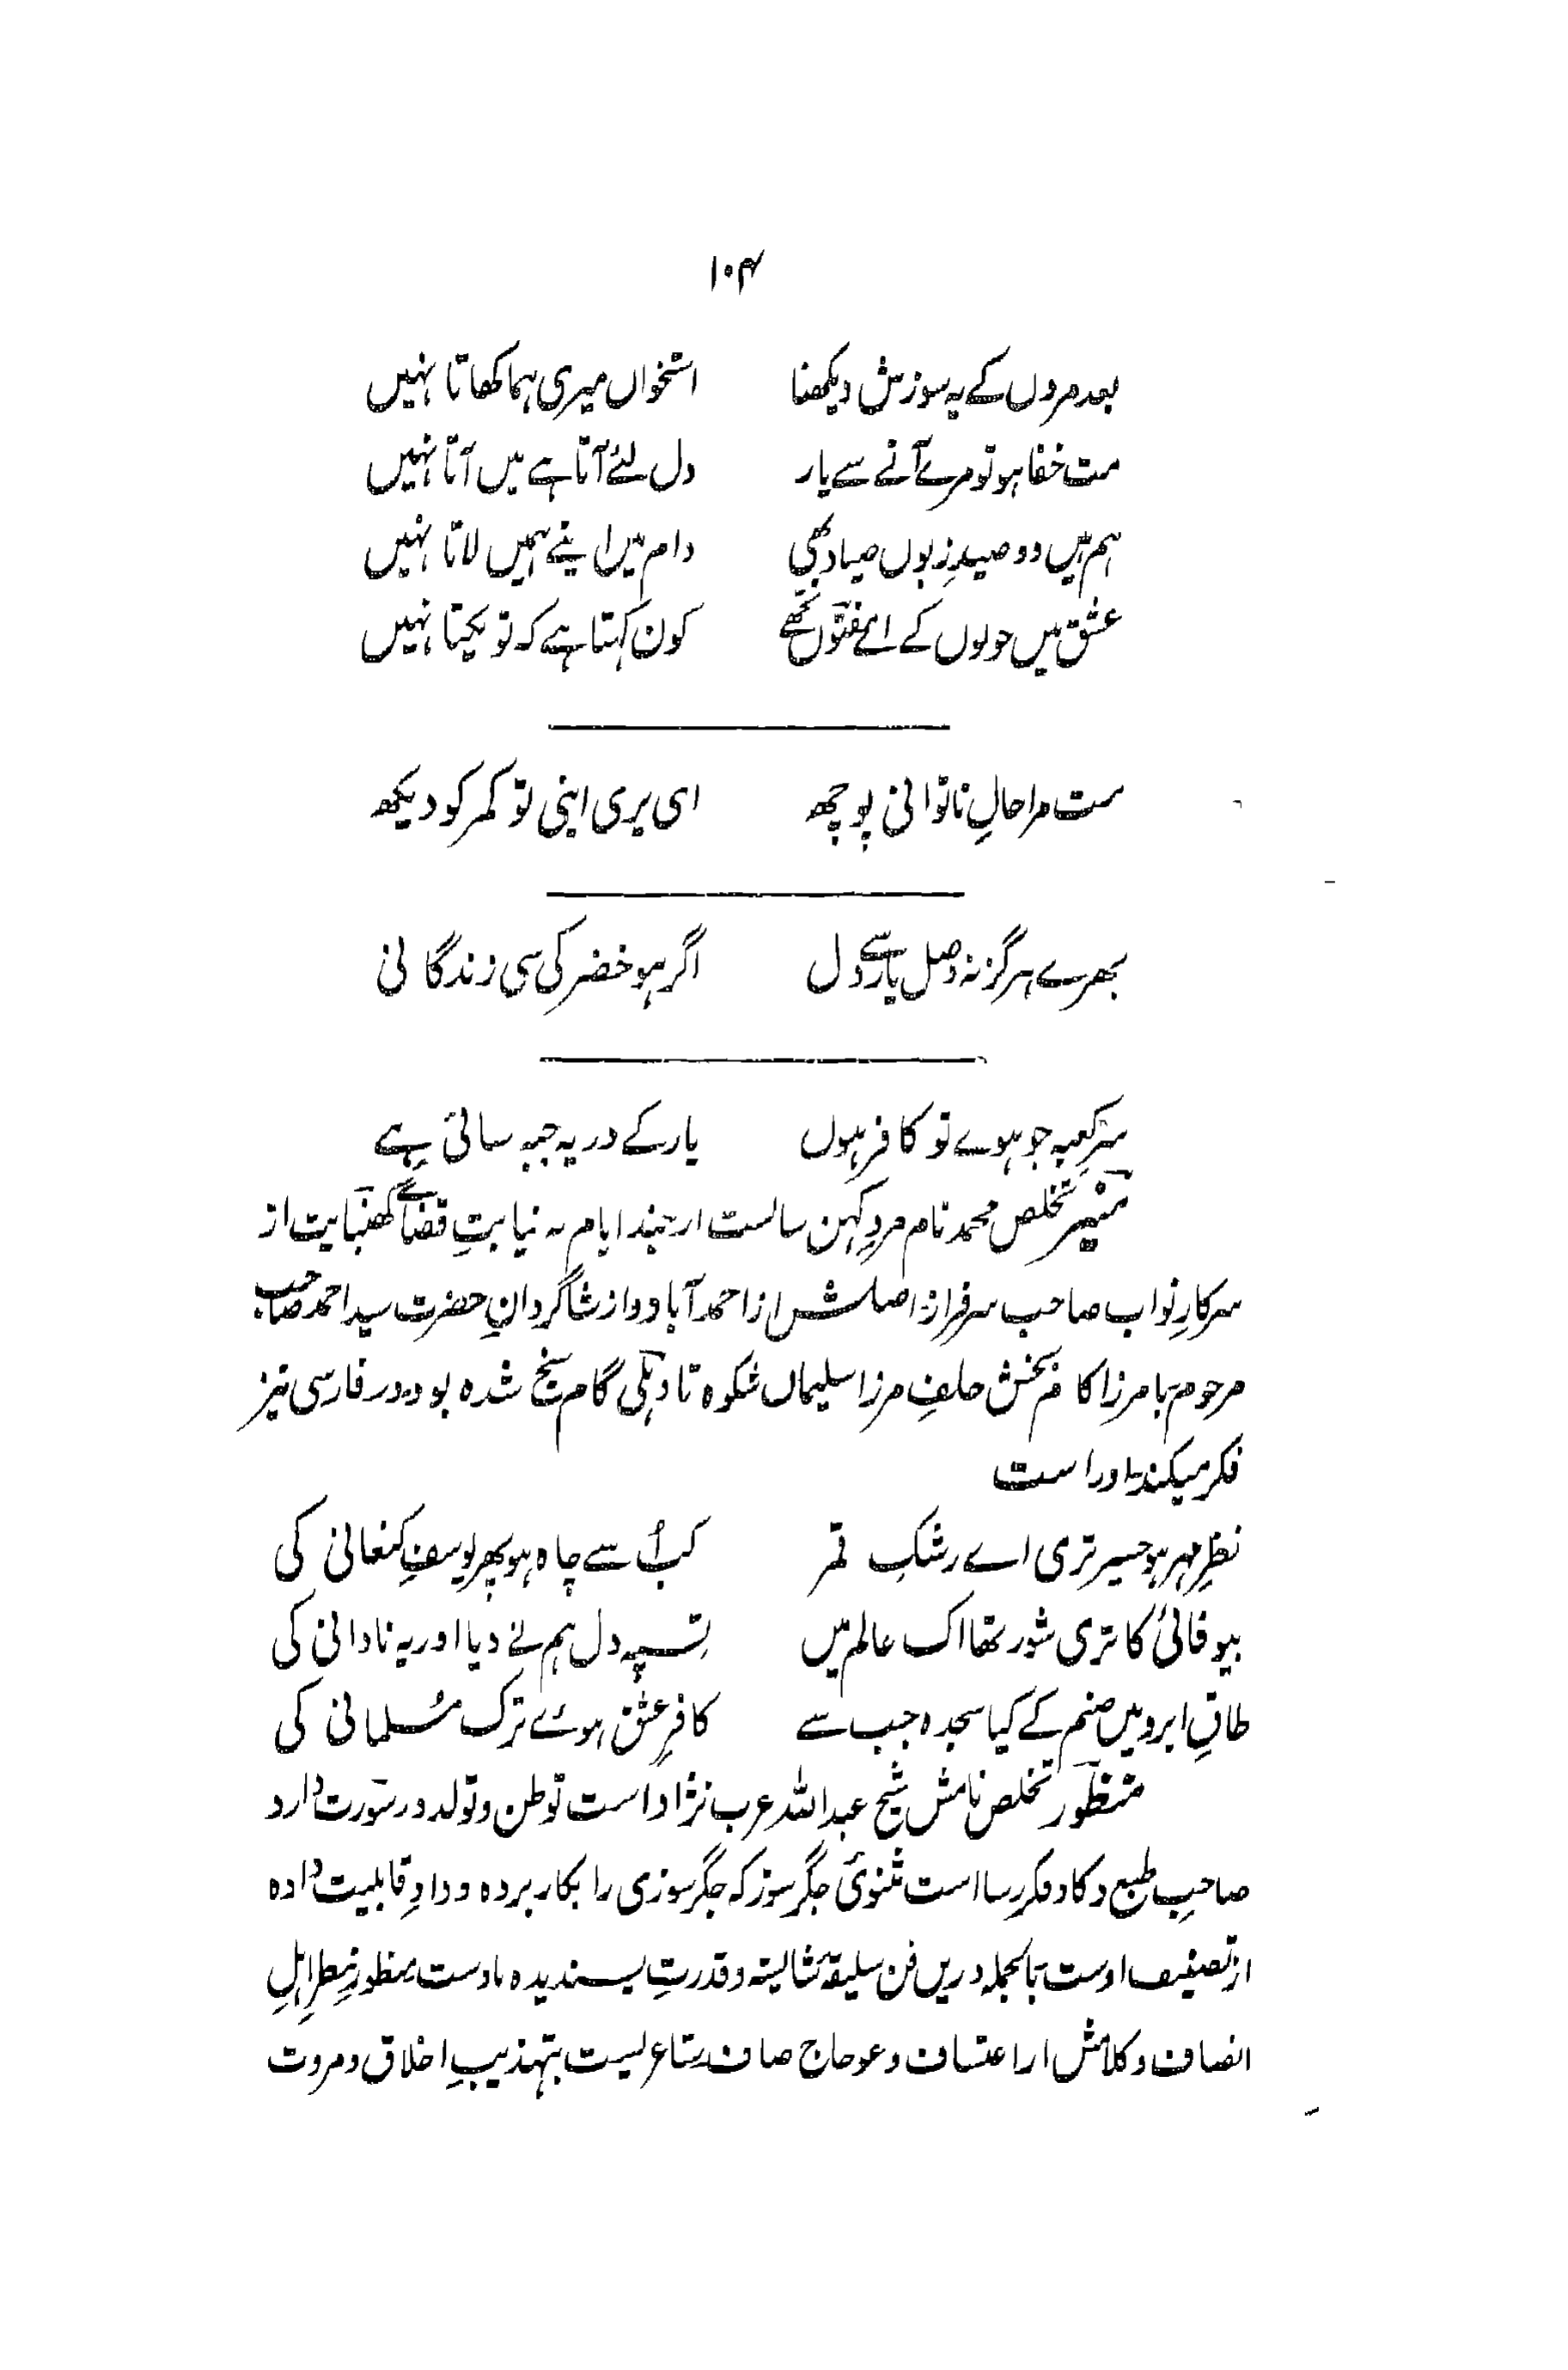 ۱۰۴
بعد مردوں کے یہ سوزش دیکھنا استخواں میری ہما کھاتا نہیں
مت خفا ہو تو مرے آنے سے یار دل لئے آتا ہے میں آتا نہیں
ہم ہیں وو صیدِ زبوں صیاد بھی دام میں اپنے ہمیں لاتا نہیں
عشق میں خولوں کے اے مفتوں تجھے کون کہتا ہے کہ تو یکتا نہیں
مت مرا حالِ ناتوانی پوچھ ای پری اپنی تو کمر کو دیکھ
بھرے ہرگز نہ وصل یار سے دل اگر ہو خضر کی سی زندگانی
سرِ کعبہ جو ہوے تو کافر ہوں یار کے در پہ جبہ سائی ہے
منیر تخلص محمد نام مردِ کہن سالست از چند ایام بہ نیابتِ قضاے کھنبایت از
سرکارِ نواب صاحب سرفراز اصلش از احمدآباد و از شاگردانِ حضرت سید احمد صاحب
مرحوم با مرزا کام بخش خلفِ مرزا سلیماں شکوہ تا دہلی گام سنج شدہ بود در فارسی نیز
فکر میکند اوراست
نظرِ مہر ہو جسپر تری اے رشکِ قمر کب اُسے چاہ ہو پھر یوسفِ کنعانی کی
بیوفائی کا تری شور تھا اک عالم میں تسپہ دل ہم نے دیا اور یہ نادانی کی
طاقِ ابرو میں صنم کے کیا سجدہ جب سے کافرِ عشق ہوئے ترک مُسلمانی کی
منظور تخلص نامش شیخ عبداللہ عرب نژاد است توطن و تولد در سورت دارد
صاحبِ طبع ذکا و فکرِ رسا است مثنویٔ جگر سوز کہ جگرسوزی را بکار بردہ و دادِ قابلیت دادہ
از تصنیف اوست بالجملہ دریں فن سلیقۂ شائستہ و قدرتِ پسندیدہ با اوست منظورِ نظرِ اہلِ
انصاف و کلامش از اعتساف و عوجاج صاف شاعریست بتہذیبِ اخلاق و مروت